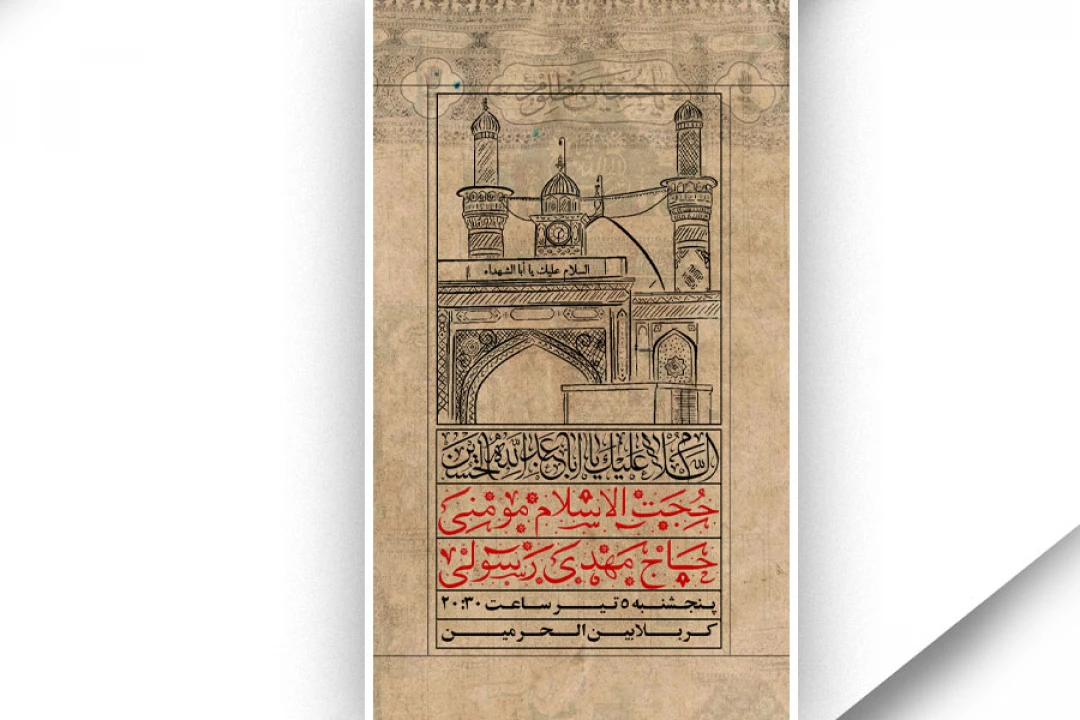 یا حسین مظلوم
السلام علیك یا أبا الشهداء
السلام علیك یا اباعبدالله الحسین
حجت الاسلام مومنی
حاج مهدی رسولی
پنجشنبه ۵ تیر ساعت ۲۰:۳۰
کربلا بین الحرمین